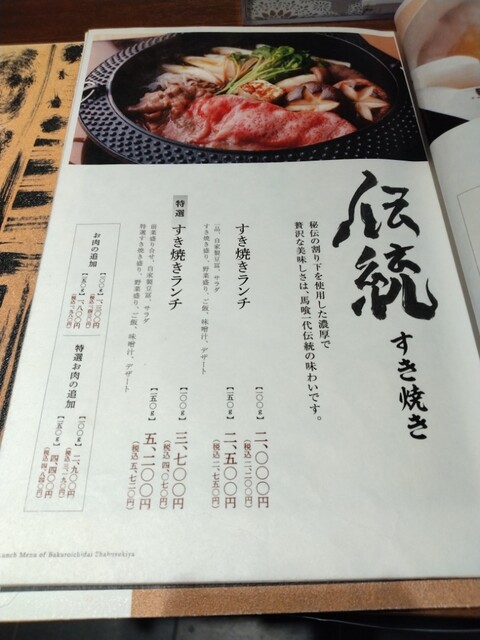 伝統
すき焼き
秘伝の割り下を使用した濃厚で
贅沢な美味しさは、馬喰一代伝統の味わいです。
すき焼きランチ
一品、自家製豆腐、サラダ
すき焼き盛り、野菜盛り、ご飯、味噌汁、デザート
【一〇〇g】 二、〇〇〇円
(税込 二、二〇〇円)
【一五〇g】 二、五〇〇円
(税込 二、七五〇円)
特選 すき焼きランチ
前菜盛り合せ、自家製豆腐、サラダ
特選すき焼き盛り、野菜盛り、ご飯、味噌汁、デザート
【一〇〇g】 三、七〇〇円
(税込 四、〇七〇円)
【一五〇g】 五、二〇〇円
(税込 五、七二〇円)
お肉の追加
【一〇〇g】
【五〇g】
特選お肉の追加
【一〇〇g】 二、九〇〇円
(税込 三、一九〇円)
【一五〇g】 四、四〇〇円
(税込 四、八四〇円)
Lunch Menu of Bakuroichidai